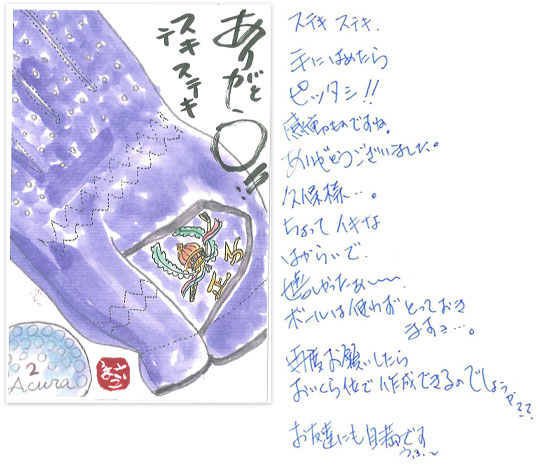 ありがと〇!!
ステキ ステキ
2
Acura
ステキ ステキ.
手にはめたら
ピッタシ!!
感動ものですね。
ありがとうございました。
久保様…。
ちょってイキな
はからいで
嬉しかったぁ〜〜
ボールは使わず とっておき
ますネ…。
再度お願いしたら
おいくら位で作成できるのでしょうか??
お友達にも自慢です